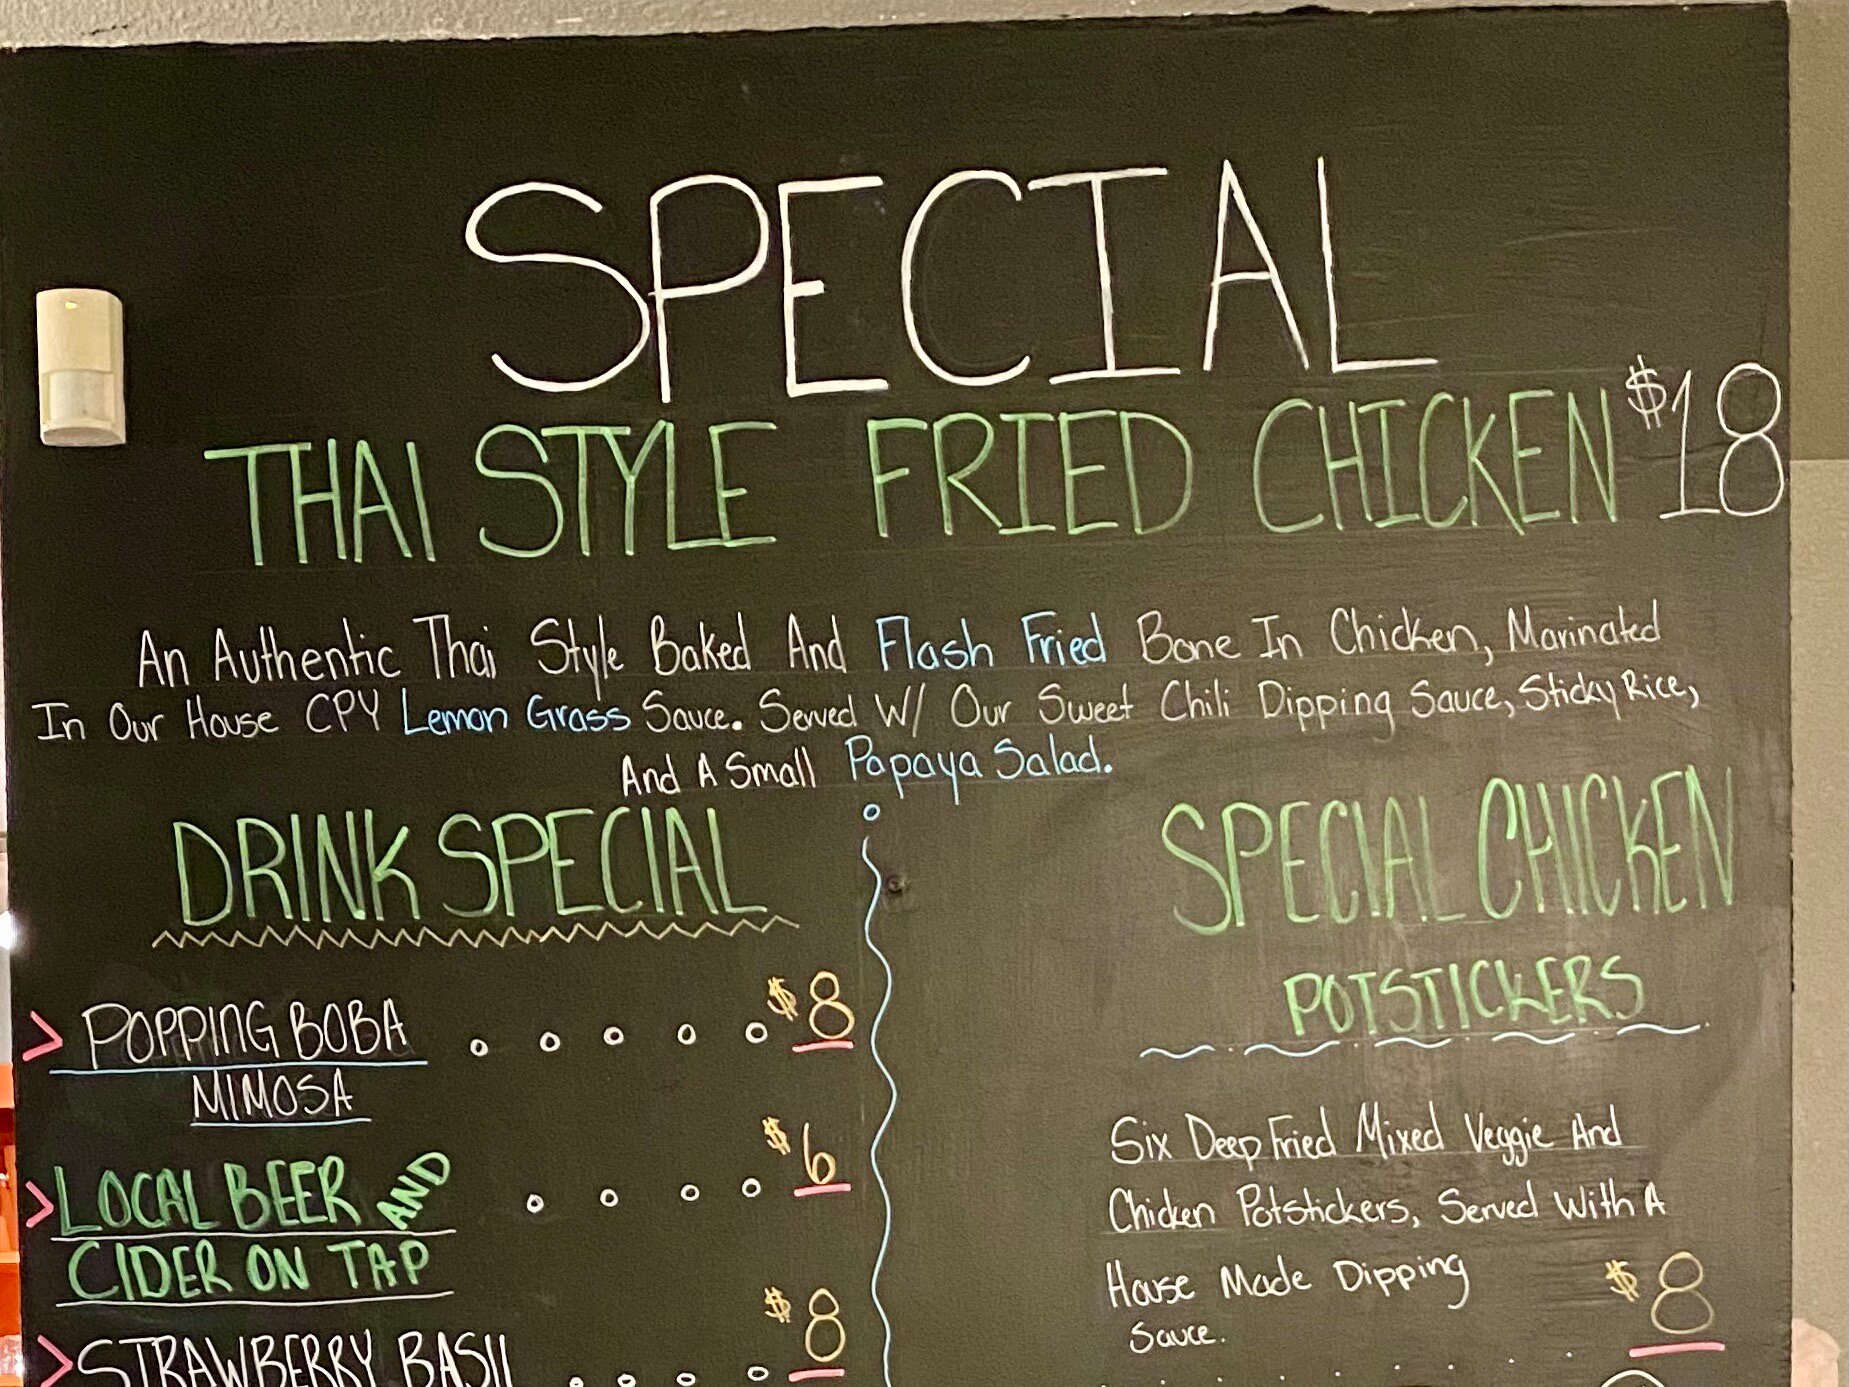 SPECIAL
THAI STYLE FRIED CHICKEN $18
An Authentic Thai Style Baked And Flash Fried Bone In Chicken, Marinated
In Our House CPY Lemon Grass Sauce. Served W/ Our Sweet Chili Dipping Sauce, Sticky Rice,
And A Small Papaya Salad.
DRINK SPECIAL
> POPPING BOBA $8
MIMOSA
> LOCAL BEER AND $6
CIDER ON TAP
> STRAWBERRY BASIL $8
SPECIAL CHICKEN
POTSTICKERS
Six Deep Fried Mixed Veggie And
Chicken Potstickers, Served With A
House Made Dipping
Sauce. $8